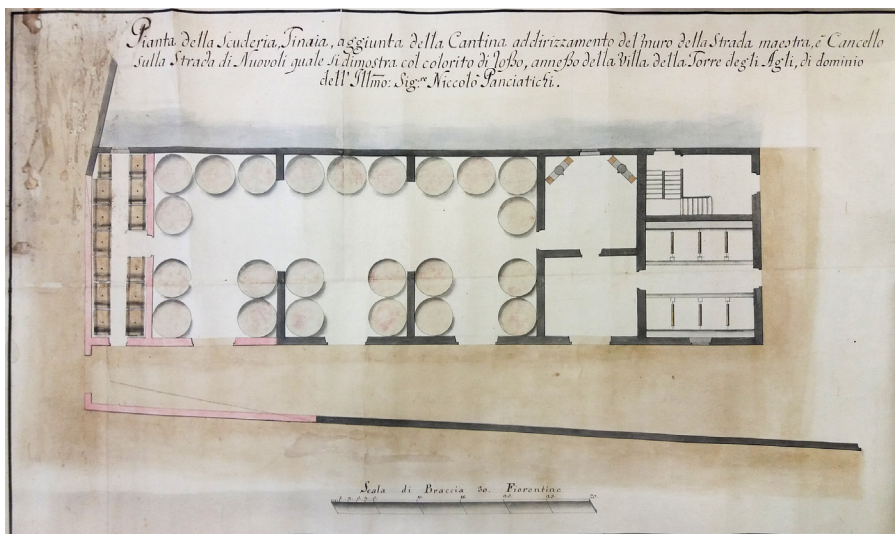 Pianta della Scuderia, Tinaia, aggiunta della Cantina addirizzamento del muro della Strada maestra, e Cancello
sulla Strada di Nuovoli quale si dimostra col colorito di Roßo, anneßo della Villa della Torre degli Agli, di dominio
dell' Illmo: Sig:re Niccolò Panciatichi.
Scala di Braccia 30 Fiorentine